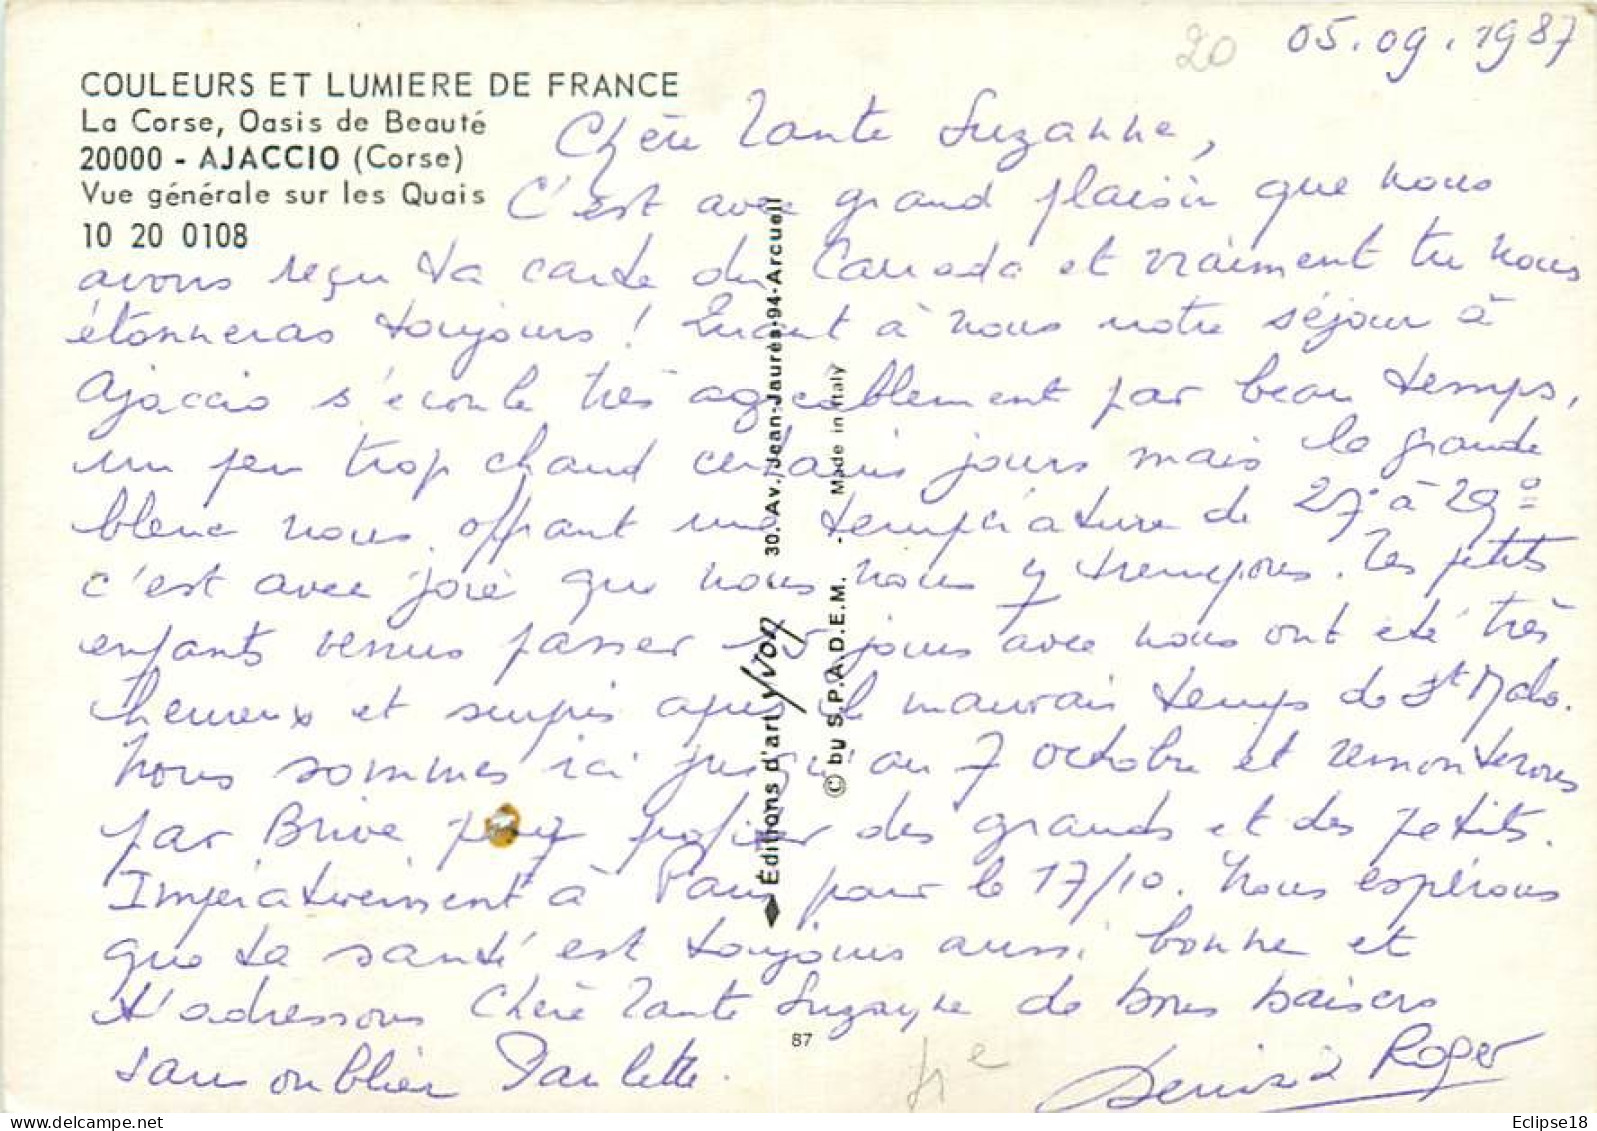 20 05.09.1987
COULEURS ET LUMIERE DE FRANCE
La Corse, Oasis de Beauté
20000 - AJACCIO (Corse)
Vue générale sur les Quais
10 20 0108
Chère Tante Suzanne,
C'est avec grand plaisir que nous
avons reçu ta carte du Canada et vraiment tu nous
étonneras toujours ! Quant à nous notre séjour à
Ajaccio s'écoule très agréablement par beau temps,
un peu trop chaud certains jours mais la grande
bleue nous offrant une température de 27° à 29°
c'est avec joie que nous nous y trempons. Les petits
enfants venus passer 15 jours avec nous ont été très
heureux et surpris après le mauvais temps de St Malo.
Nous sommes ici jusqu'au 7 octobre et remonterons
par Brive pour profiter des grands et des petits.
Impérativement à Paris pour le 17/10. Nous espérons
que ta santé est toujours aussi bonne et
t'adressons Chère Tante Suzanne de bons baisers
sans oublier Paulette.
Roger
Éditions d'art Yvon 30, Av. Jean-Jaurès, 94-Arcueil
© by S.P.A.D.E.M. - Made in Italy
87
Eclipse18